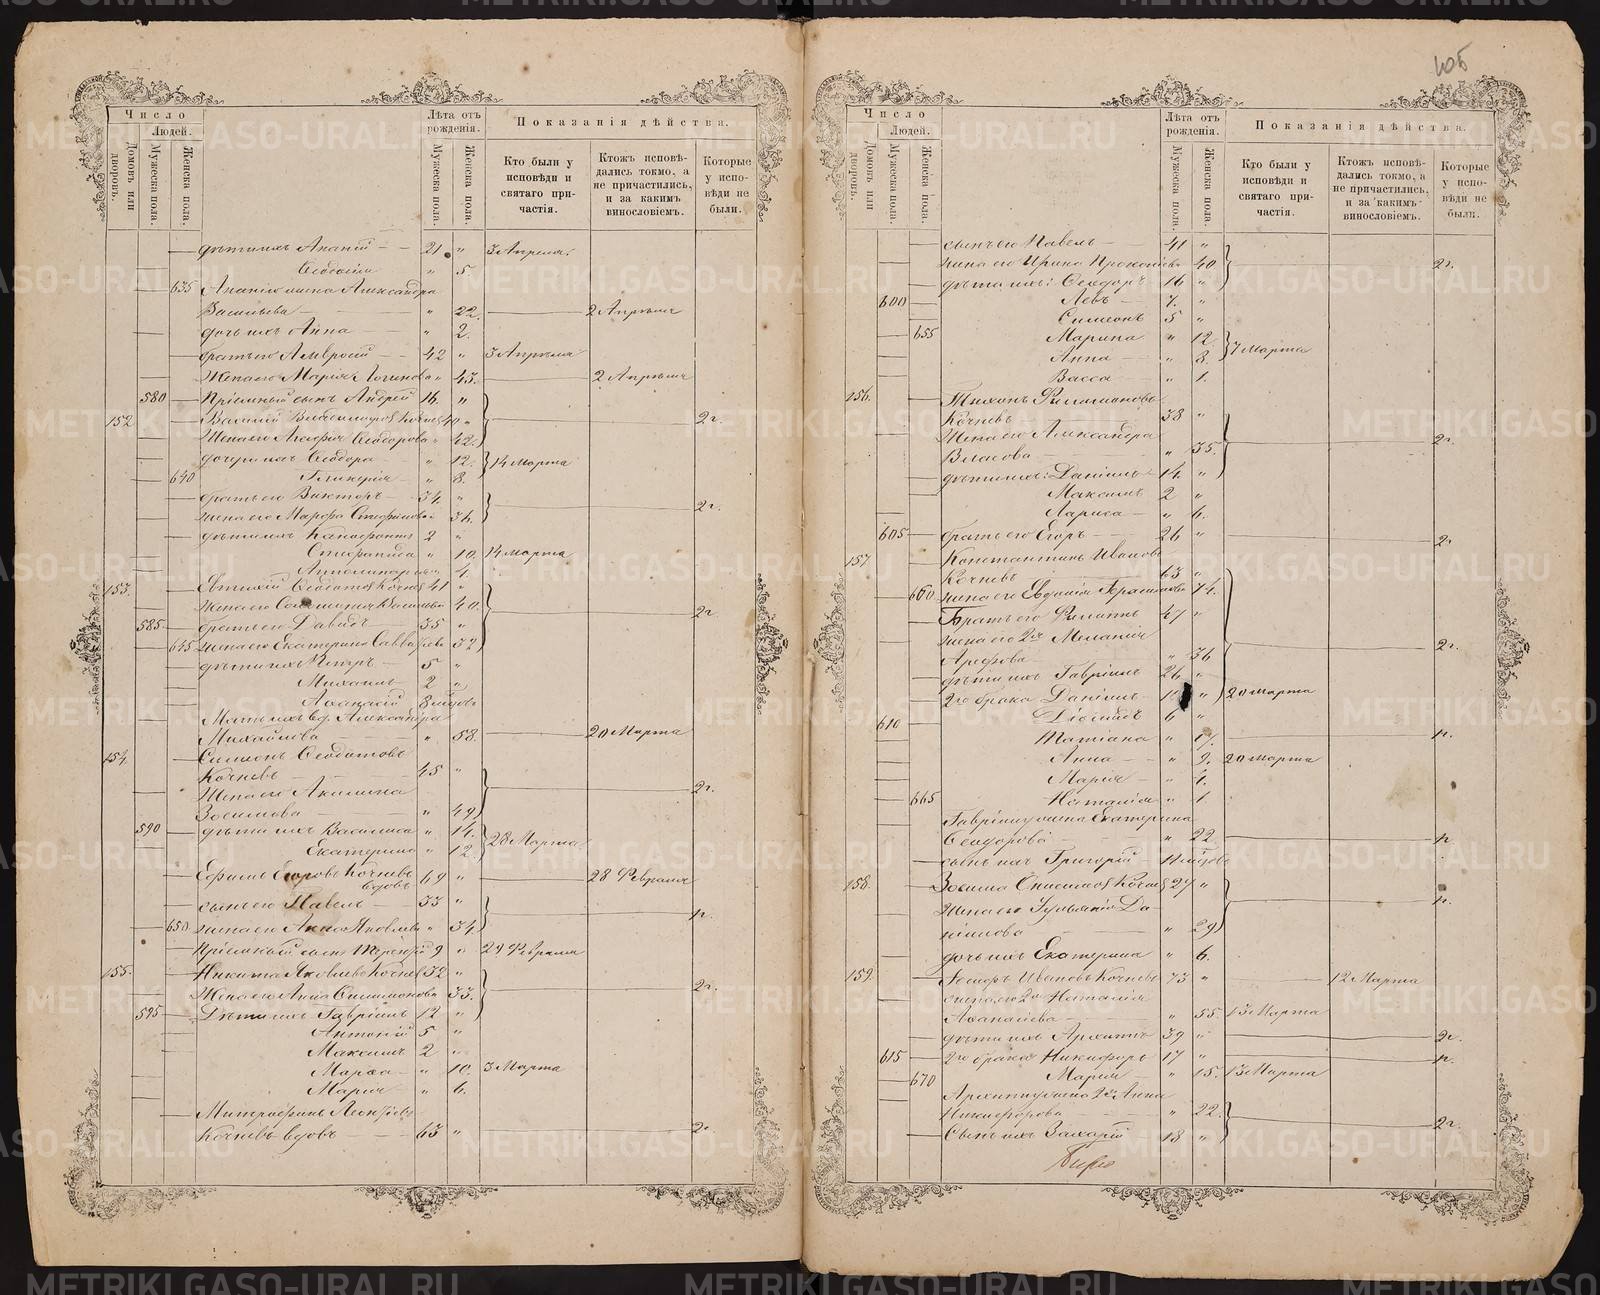 105
Число
Людей.
Домовъ или дворовъ.
Мужеска пола.
Женска пола.
Лѣта отъ рожденія.
Мужеска пола.
Женска пола.
Показанія дѣйства.
Кто были у исповѣди и святаго причастія.
Ктожъ исповѣдались токмо, а не причастились, и за какимъ винословіемъ.
Которые у исповѣди не были.
дѣти ихъ Ананій — 21 " 3 Апрѣля.
Феодосія " 5
635 Ананію жена Александра
Васильева — " 22. 2 Апрѣля
дочь ихъ Анна — " 2.
братъ его Амвросій — 42 " 3 Апрѣля
Жена его Марія Логинова " 43. 2 Апрѣля
580 Пріемный сынъ Андрей 16. "
152 Василій Кочневъ 40 " 2г.
Жена его Агафія Феодорова " 42.
дочери ихъ Феодора " 12. 14 Марта
640 Гликерія — " 8.
братъ его Викторъ — 34. "
жена его Марфа " 34. 2г.
дѣти ихъ 2 "
Стефанида " 10. 14 Марта
Апполинарія " 4.
153. Евтихій Кочневъ 41 "
Жена его Соломонія Васильева 40. 2г
585 братъ его Давидъ — 35 "
645 жена его Екатерина Савватѣева 32
дѣти ихъ Петръ — 5 "
Михаилъ 2 "
Афанасій 8 мѣсяц.
Мать ихъ вд. Александра
Михайлова — " 58. 20 Марта
154. Симеонъ Феодотовъ
Кочневъ — 45 "
Жена его Акилина 2г.
Зосимова — " 49
590 дѣти ихъ Василиса " 14.
Екатерина " 12. 28 Марта
Ефимъ Егоровъ Кочневъ
вдовъ 69 " 28 Февраля
сынъ его Павелъ — 33 "
650 жена его Анна Яковлева " 34. н.
Пріемный сынъ 9 " 29 Февраля
155. Никита Яковлевъ Кочневъ 32 " 2г.
Жена его Анна Филимонова 33.
595 Дѣти ихъ Гавріилъ 12 "
Антоній 5 "
Максимъ 2 "
Марѳа — " 10. 3 Марта
Марія " 6.
Митрофанъ Леонтьевъ
Кочневъ вдовъ — 63 " 2г
Число
Людей.
Домовъ или дворовъ.
Мужеска пола.
Женска пола.
Лѣта отъ рожденія.
Мужеска пола.
Женска пола.
Показанія дѣйства.
Кто были у исповѣди и святаго причастія.
Ктожъ исповѣдались токмо, а не причастились, и за какимъ винословіемъ.
Которые у исповѣди не были.
сынъ его Павелъ — 41 "
жена его Ирина Прокопіева 40. 2г.
дѣти ихъ: Феодоръ 16 "
600 Левъ — 7. "
Симеонъ 5 "
655 Марина " 12.
Анна — " 8. 7 Марта
Васса — " 1.
156. Тихонъ Филимоновъ
Кочневъ 38 "
Жена его Александра 2г.
Власова — " 35.
дѣти ихъ: Даніилъ 14. "
Максимъ 2 "
Лариса — " 6.
605 братъ его Егоръ — 26 " 2г
157. Константинъ Ивановъ
Кочневъ 63 "
660 жена его Евдокія Герасимова 74.
Братъ его Филиппъ 47 "
жена его 2я Меланія 2г.
Арефова " 36
дѣти ихъ Гавріилъ 26 "
2го брака Даніилъ " 20 Марта
610 Діомидъ 6 "
Татіана " 17. н.
Анна — " 9. 20 Марта
Марія — " 4.
665 Наталія " 1.
Гавріилу жена Екатерина
Феодорова — " 22. н.
сынъ ихъ Григорій
158. Зосима Кочневъ 27 " н.
Жена его Іуліанія Да-
ніилова " 29
дочь ихъ Екатерина " 6.
159. Феодоръ Ивановъ Кочневъ 73 " 12 Марта
жена его 2я Наталія
Афанасіева — " 55. 13 Марта
дѣти ихъ Архиппъ 39 " 2г.
615 2го брака Никифоръ 17 " н.
670 Марія — " 15. 13 Марта
Архиппу жена 2я Анна
Никифорова — " 22. 2г.
Сынъ ихъ Захарій 13 "
METRIKI.GASO-URAL.RU